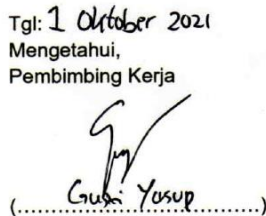 Tgl: 1 Oktober 2021
Mengetahui,
Pembimbing Kerja
(.... Gusri Yosup ....)